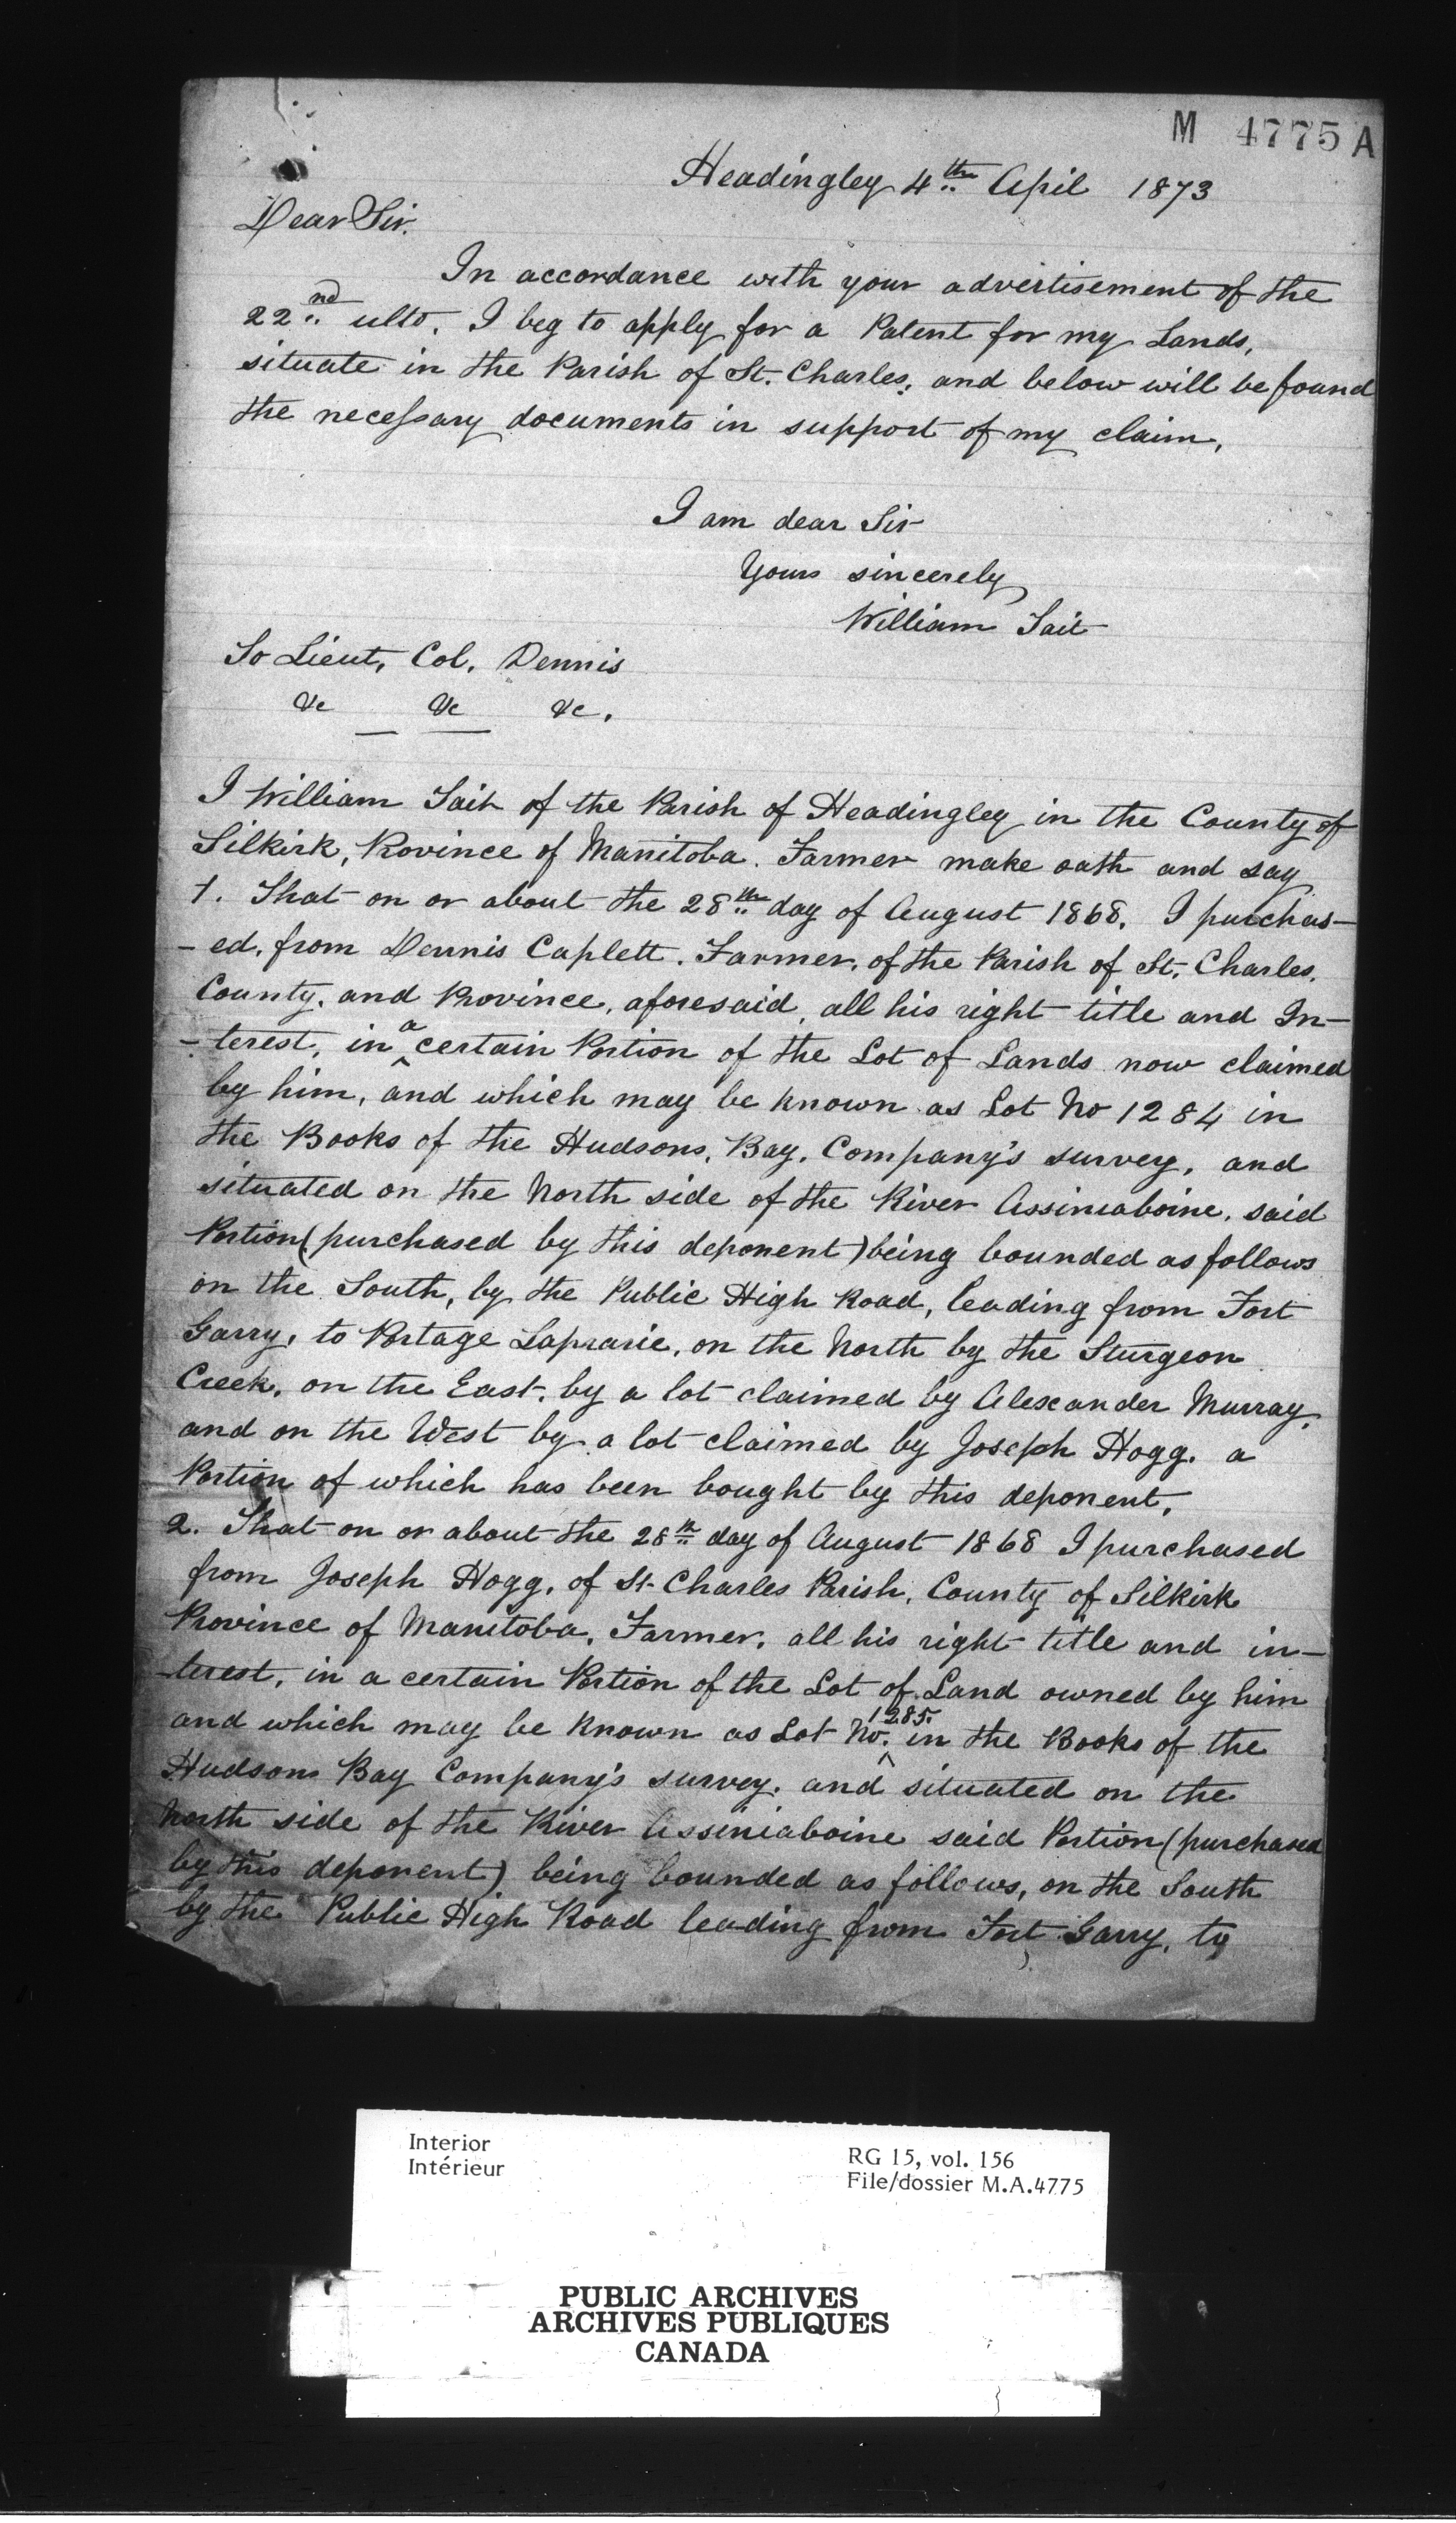 M 4775 A
Headingley 4th April 1873
Dear Sir.
In accordance with your advertisement of the
22nd ulto. I beg to apply for a Patent for my Lands,
situate in the Parish of St. Charles, and below will be found
the necessary documents in support of my claim.
I am dear Sir
Yours sincerely
William Tait
To Lieut. Col. Dennis
&c &c &c.
I William Tait of the Parish of Headingley in the County of
Silkirk, Province of Manitoba. Farmer make oath and say
1. That on or about the 28th day of August 1868. I purchas-
-ed. from Dennis Caplett. Farmer. of the Parish of St. Charles.
County. and Province. aforesaid, all his right title and In-
-terest, in a certain Portion of the Lot of Lands now claimed
by him, and which may be known as Lot No 1284 in
the Books of the Hudsons, Bay, Company's survey, and
situated on the North side of the River Assiniaboine. said
Portion (purchased by this deponent) being bounded as follows
on the South, by the Public High Road, leading from Fort
Garry, to Portage Laprarie, on the North by the Sturgeon
Creek. on the East. by a lot claimed by Alexander Murray.
and on the West by a lot claimed by Joseph Hogg. a
Portion of which has been bought by this deponent.
2. That on or about the 28th day of August 1868 I purchased
from Joseph Hogg. of St. Charles Parish, County of Silkirk
Province of Manitoba, Farmer. all his right title and in-
-terest, in a certain Portion of the Lot of Land owned by him
and which may be known as Lot No. 1285. in the Books of the
Hudsons Bay Company's survey. and situated on the
North side of the River Assiniaboine said Portion (purchased
by this deponent) being bounded as follows, on the South
by the Public High Road leading from Fort Garry, to
Interior
Intérieur
RG 15, vol. 156
File/dossier M.A.4775
PUBLIC ARCHIVES
ARCHIVES PUBLIQUES
CANADA